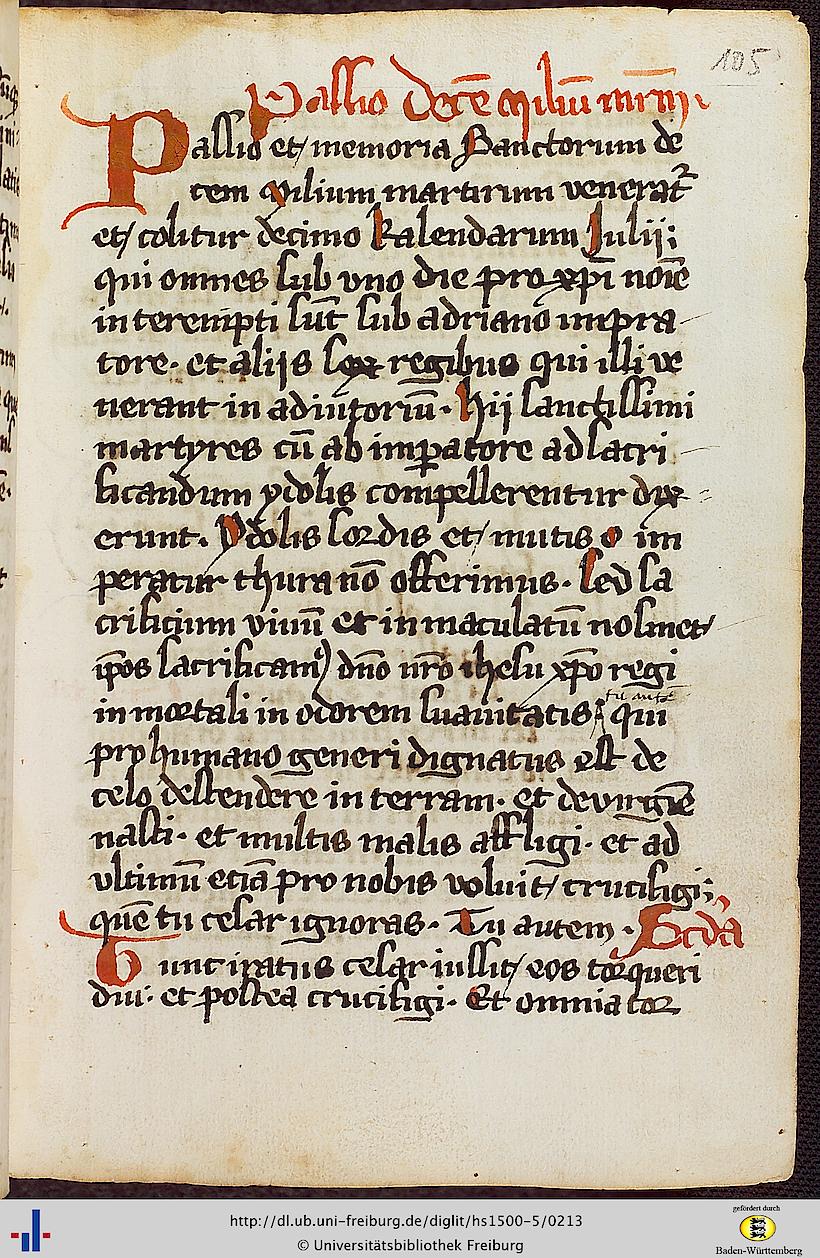 105
Passio Decē Miliū mrm̄.
Passio et memoria Sanctorum de
cem Milium martirum venerat᷑
et colitur decimo Kalendarum Julij;
qui omnes sub vno die pro xp̄i noīe
interempti sūt sub adriano impra-
tore. et alijs sex regibus qui illi ve
nerant in adiutoriū. Hij sanctissimi
martyres cū ab imꝑatore ad sacri-
ficandum ydolis compellerentur dix=
erunt. Ydolis sordis et mutis o im
peratur thura nō offerimus. sed sa
crificium viuū et inmaculatū nosmet
ip̄os sacrificamꝰ dn̄o nr̄o ihesu xp̄o regi
inmortali in odorem suauitatis, qui
tu autē
pro humano generi dignatus est de
celo descendere in terram. et de virgīe
nasci. et multis malis affligi. et ad
vltimū eciā pro nobis voluit crucifigi;
quē tu cesar ignoras. Tu autem. Scd̄a
Tunc iratus cesar iussit eos torqueri
diu. et postea crucifigi. Et omnia tor
http://dl.ub.uni-freiburg.de/diglit/hs1500-5/0213
© Universitätsbibliothek Freiburg
gefördert durch
Baden-Württemberg